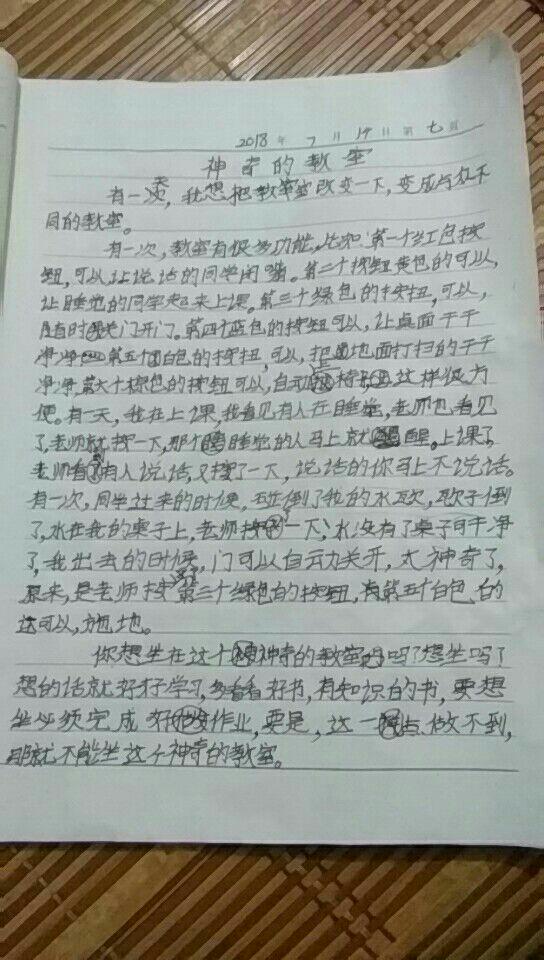 2018 年 7 月 14 日 第 七 页
神奇的教室
有一天，我想把教室改变一下，变成与众不
同的教室。
有一次，教室有很多功能，比如：第一个红色按
钮，可以让说话的同学闭嘴。第二个按钮黄色的可以，
让睡觉的同学起来上课。第三个绿色的按扭，可以，
随时关门开门。第四个蓝色的按钮可以，让桌面干干
净净第五个白色的按扭，可以，把地面打扫的干干
净净，第六个棕色的按钮可以，自动这样很方
便。有一天，我在上课，我看见有人在睡觉，老师也看见
了，老师就按一下，那个睡觉的人马上就醒。上课了，
老师看有人说话，又按了一下，说话的你马上不说话。
有一次，同学过来的时候，碰倒了我的水瓶，瓶子倒
了，水在我的桌子上，老师按一下，水没有了桌子可干净
了，我出去的时候，门可以自动关开，太神奇了，
原来，是老师按第三个绿色的按钮，有第五个白色的
还可以，拖地。
你想坐在这个神奇的教室吗？想坐吗？
想的话就好好学习，多看看好书，有知识的书，要想
坐必须完成好作业，要是，这一点做不到，
那就不能坐这个神奇的教室。